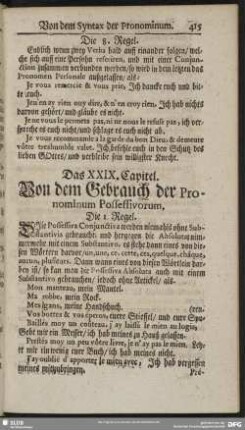 Von dem Syntax der Pronominum. 415
Die 8. Regel.
Endlich wenn zwey Verba bald auff einander folgen / wel-
che sich auff eine Persohn referiren, und mit einer Conjun-
ction zusammen verbunden werden / so wird in dem letzten das
Pronomen Personale außgelassen / als:
Je vous remercie & vous prie, Ich dancke euch und bit-
te euch.
Jen'en ay rien ouy dire, & n'en croy rien. Ich hab nichts
darvon gehört / und glaube es nicht.
Je ne vous le promets pas, ni ne vous le refuse pas, ich ver-
spreche es euch nicht / und schlage es euch nicht ab.
Je vous recommende à la garde du bon Dieu, & demeure
vôtre treshumble valet. Ich befehle euch in den Schutz des
lieben GOttes / und verbleibe sein williger Knecht.
Das XXIX. Capitel.
Von dem Gebrauch der Pro-
nominum Possessivorum.
Die 1. Regel.
Die Possessiva Conjunctiva werden niemahls ohne Sub-
stantivis gebraucht: und hergegen die Absoluta nim-
mermehr mit einem Substantivo, es stehe dann eines von die-
sen Wörtern darvor
aucun, plusieurs. Dann wann eines von diesen Wörtern dar-
bey ist / so kan man die Possessiva Absoluta auch mit einem
Substantivo gebrauchen / jedoch ohne Artickel / als:
Mon manteau, mein Mantel.
Ma robbe, mein Rock.
Mes gans, meine Handschuch.
Vos bottes & vos éperons, eure Stieffel / und eure Spo-
(ren.
Bailles moy un coûteau, j'ay laissé le mien au logis,
Gebt mir ein Messer / ich hab meines zu Hauß gelassen.
Prestés moy un peu vôtre livre, je n'ay pas le mien. Ley-
het mir ein wenig euer Buch / ich hab meines nicht.
J'ay oublié d'apporter le mien avec, Ich hab vergessen
meines mitzubringen.
Pré-